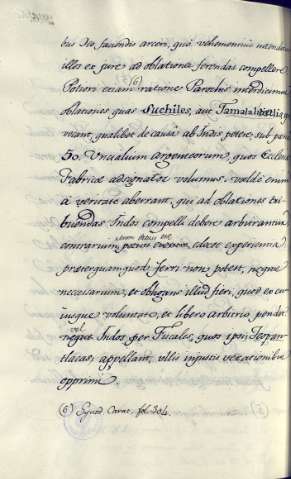 bus Do, faciendis arceri, quó vehementius intendere
illos ex jure ad oblationes ferendas compellere
Potiori etiam (6) ratione Parochis interdicimus
oblationes quas Suchiles, aut
vocant, qualibet de causâ ab Indis petere, sub pena
50. Uncialium argenteorum, quos Ecclesiæ
Fabricæ adsignatos volumus. valdè enim
à veritate aberrant, qui ad oblationes exhi-
buendas Indos compelli debere arbitrantur
contrarium, docet experientia
præterquamquod ferri non potest, neque
necessarium, et obligans illud fieri, quod ex cu-
iusque voluntate, et libero arbitrio pendet.
vel
neque Indos per Fiscales, quos ipsi Tepan-
tlacas, appellant, ullis injustis vexationibus
opprimi.
(6) fol. 304.